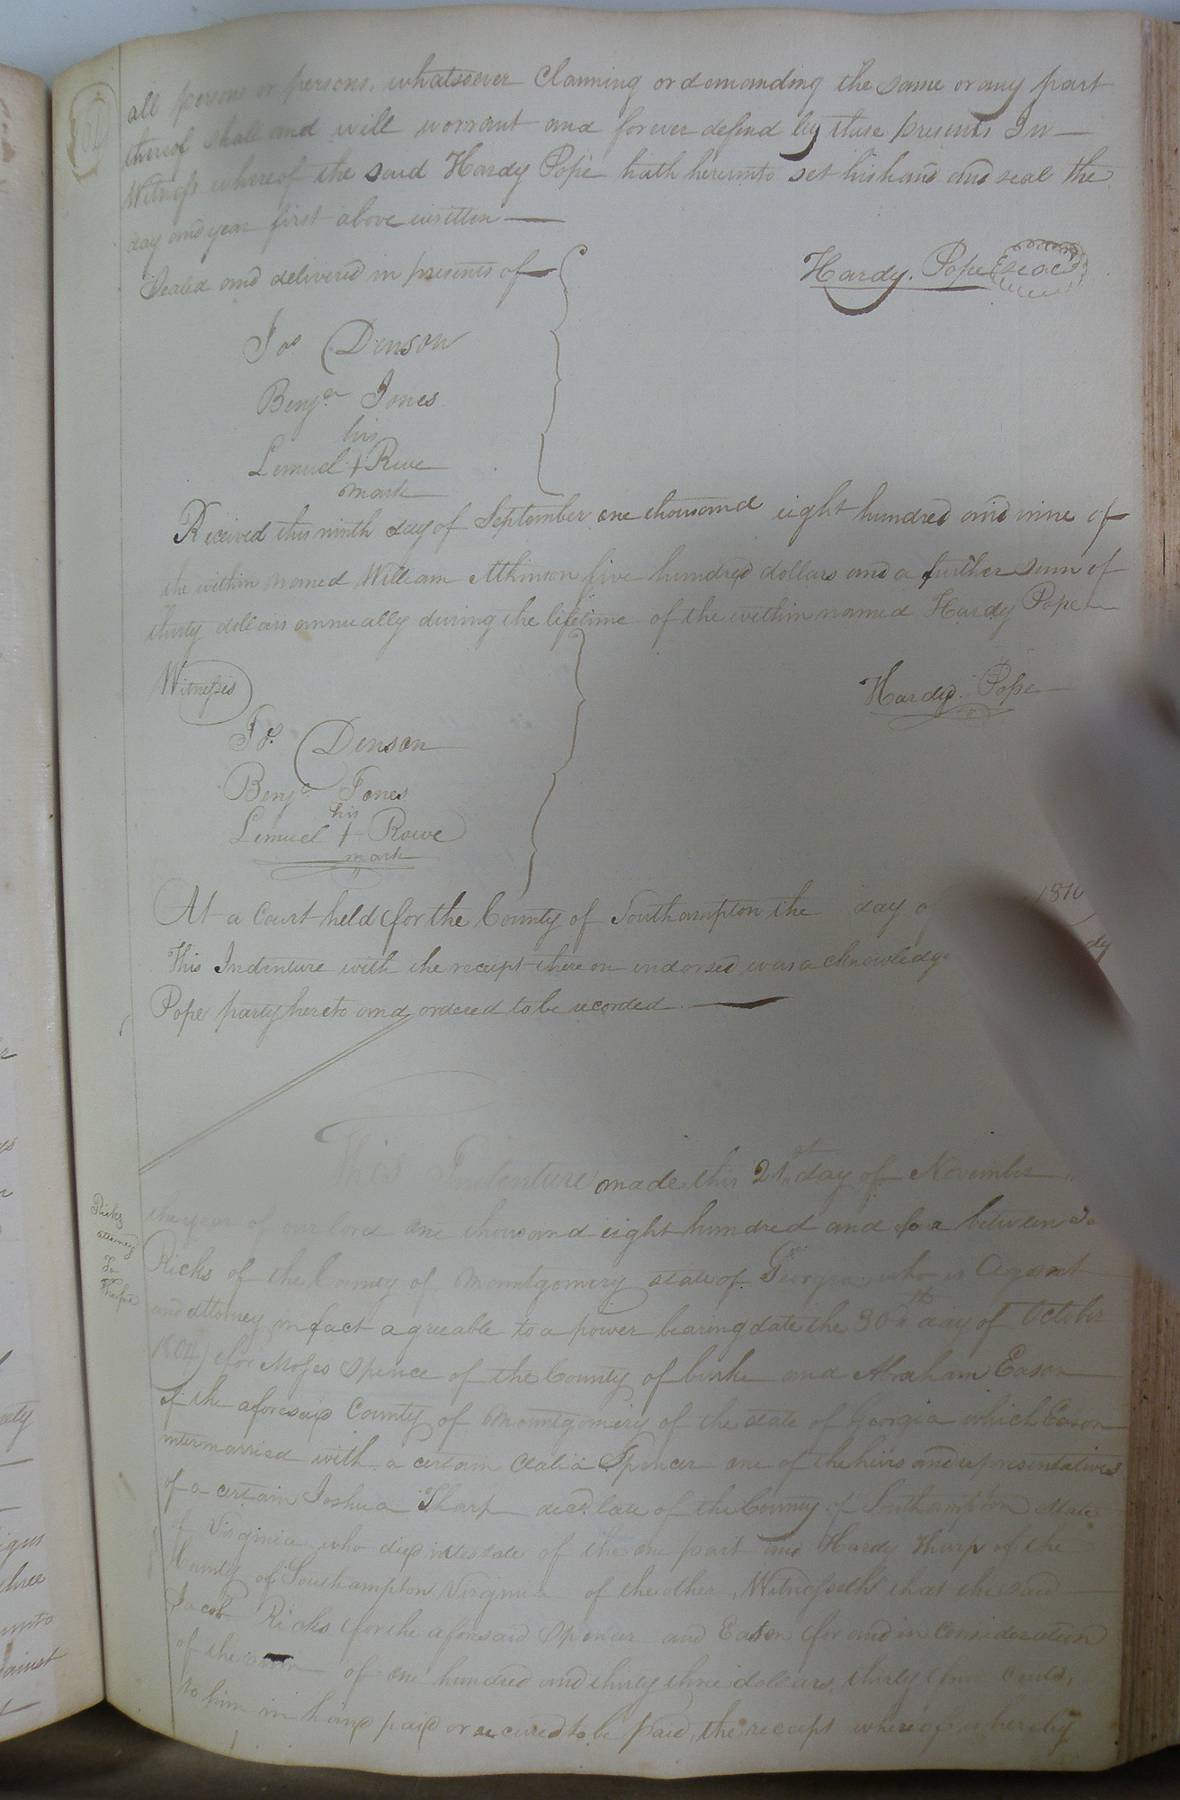 all persons or persons, whatsoever Claiming or demanding the same or any part
thereof shall and will warrant and forever defend by these presents In
Witness whereof the said Hardy Pope hath hereunto set his hand and seal the
day and year first above written
Sealed and delivered in presents of
Hardy. Pope (seal)
Jos Denson
Benja Jones
his
Lemuel + Rowe
mark
Received this ninth day of September one thousand eight hundred and nine of
the within named William Atkinson five hundred dollars and a further sum of
thirty dollars annually during the lifetime of the within named Hardy Pope
Witnesses
Hardy. Pope
Jos. Denson
Benja Jones
his
Lemuel + Rowe
mark
At a Court held for the County of Southampton the day 1810
This Indenture with the receipt thereon indorsed was acknowledge dy
Pope party hereto and ordered to be recorded
This Indenture made this 21st day of November
the year of our lord one thousand eight hundred and between
Ricks of the County of Montgomery state of Georgia who is Agent
and attorney in fact agreeable to a power bearing date the 30th day of October
1804 for Moses Spence of the County of burke and Abraham Eason
of the aforesaid County of Montgomery of the state of Georgia which Eason
intermarried with a certain Spencer one of the heirs and representatives
of a certain Joshua Tharp decd. late of the County of Southampton State
of Virginia who died intestate of the one part and Hardy Tharp of the
County of Southampton Virginia of the other Witnesseth that the said
Jacob Ricks for the aforesaid Spencer and Eason for and in consideration
of the of one hundred and thirty three dollars, thirty three cents,
to him in hand paid or secured to be paid, the receipt whereof is hereby
Ricks
attorney
To
Tharpe